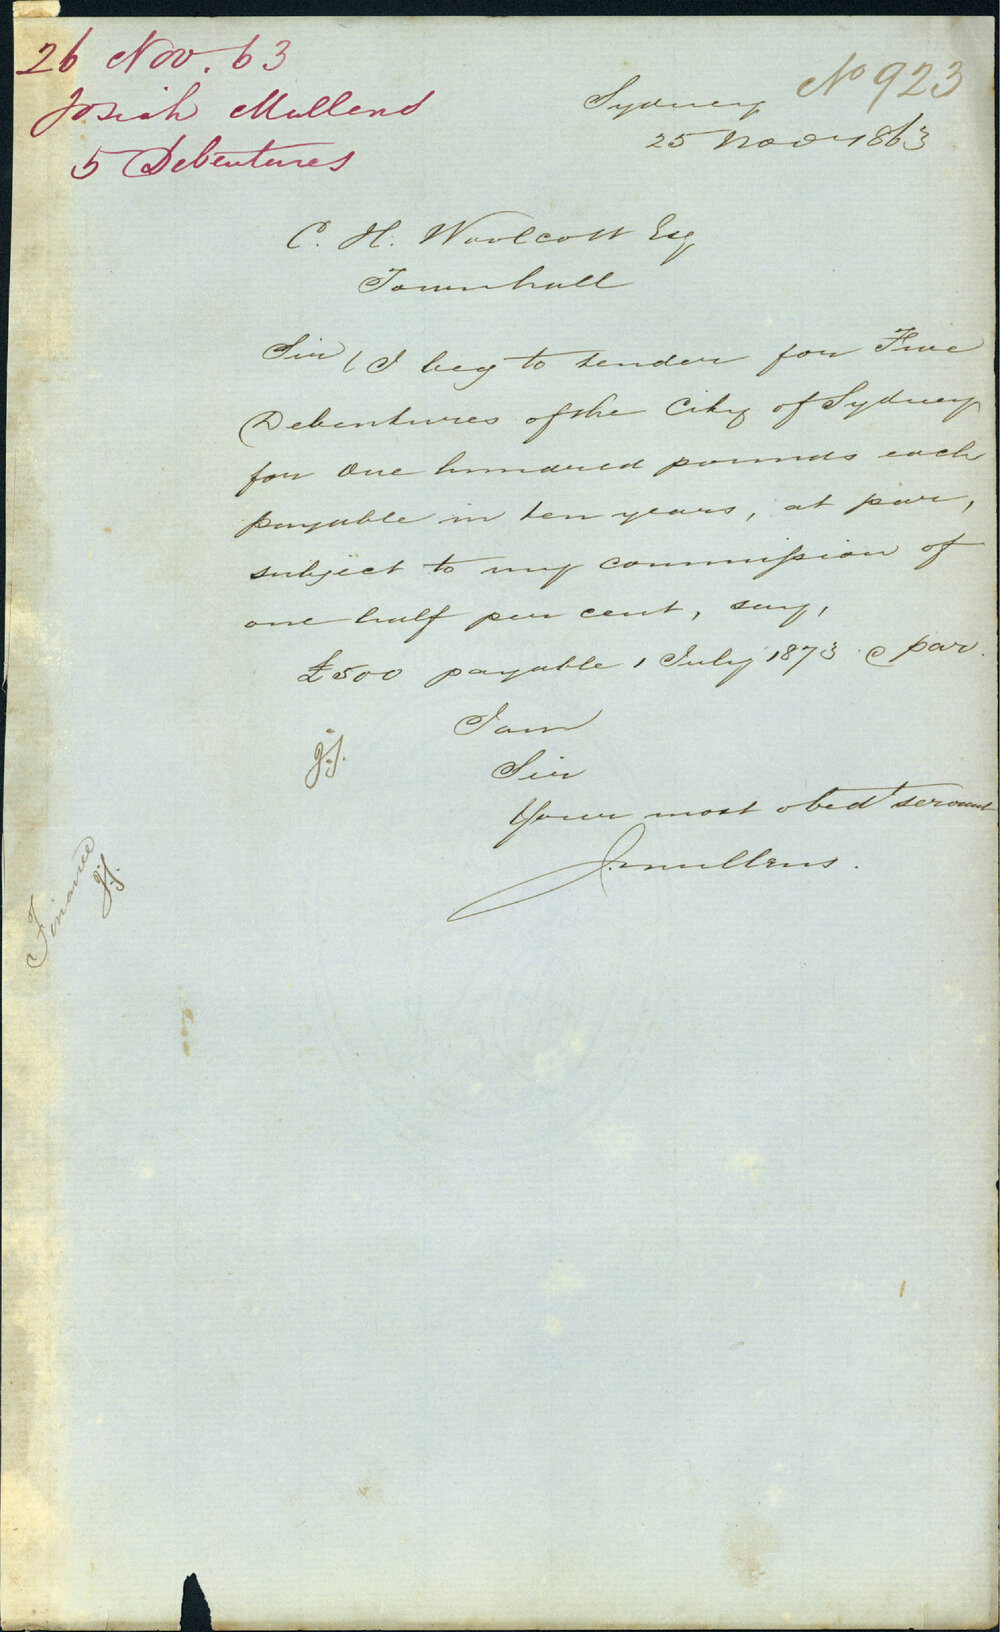 26 Nov. 63
Josiah Mullens
5 Debentures
No 923
Sydney
25 Nov 1863
C. H. Woolcott Esq
Townhall
Sir / I beg to tender for Five
Debentures of the City of Sydney
for One hundred pounds each
payable in ten years, at par,
subject to my commission of
one half per cent, say,
£500 payable 1 July 1873 @ par.
I am
Sir
Your most obedt servant
J. Mullens.
Finance